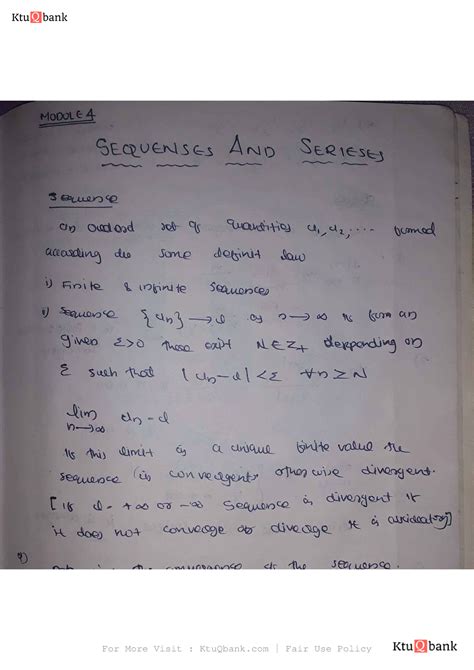 KtuQbank
MODULE 4
SEQUENSES AND SERIESES
Sequence
an ordered set of quantities u1, u2, .... formed
according to some definit law
i) Finite & infinite sequences
Sequence {un} → l as n → ∞ if for an
given ε>0 there exit N∈Z+ depending on
ε such that |un-l|<ε ∀n≥N
lim un - l
n→∞
If this limit is a unique finite value the
sequence is convergent otherwise divergent.
[If l = +∞ or -∞ Sequence is divergent if
it does not converge or diverge it is
the convergence of the sequence.
For More Visit : KtuQbank.com | Fair Use Policy
KtuQbank